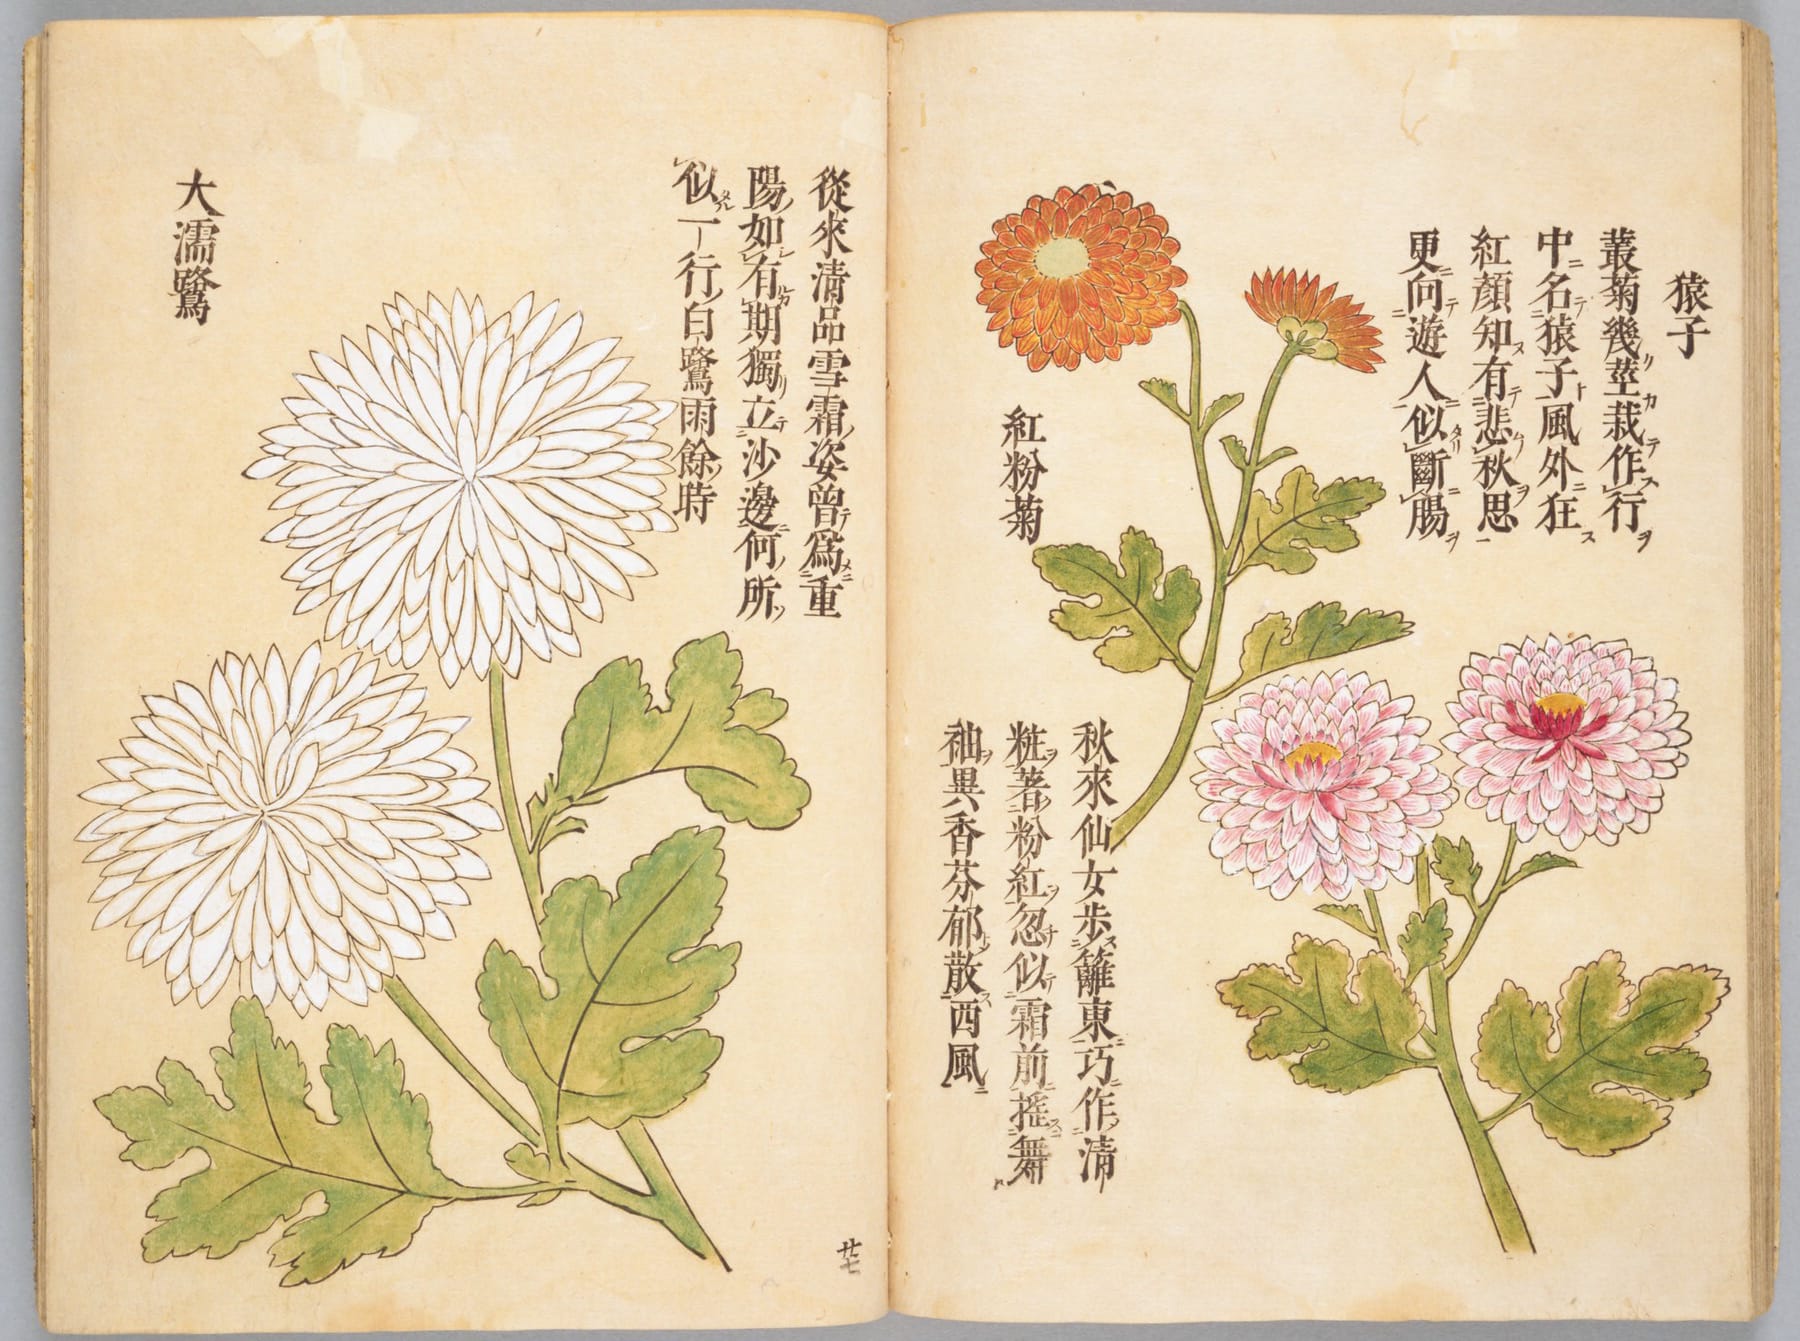 猿子
叢菊幾莖栽作行
中名猿子風外狂
紅顔知有悲秋思
更向遊人似斷腸
紅粉菊
秋來仙女歩籬東巧作清
粧著粉紅忽似霜前搖舞
袖異香芬郁散西風
從來清品雪霜姿曽爲重
陽如有期獨立沙邊何所
似一行白鷺雨餘時
大濡鷺
廿七